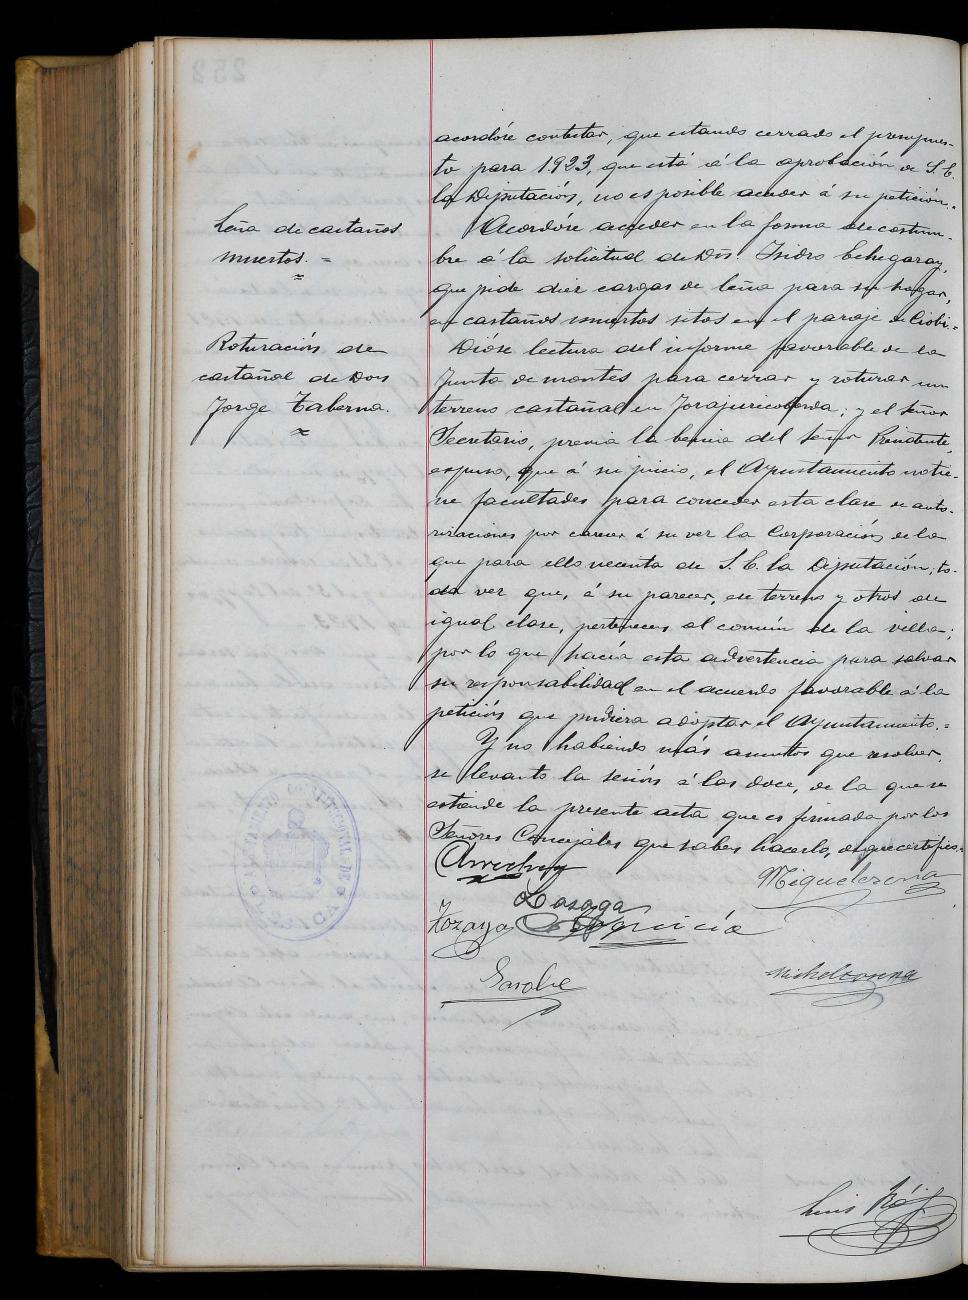 acordóse contestar, que estando cerrado el presupues-
to para 1923, que está á la aprobación de S. E.
la Diputación, no es posible acceder á su petición.=
Leña de castaños
muertos. =
Acordóse acceder en la forma de costum-
bre á la solicitud de Don Isidro Echegaray,
que pide diez cargas de leña para su hogar,
en castaños muertos sitos en el paraje de
Roturación de
castañal de Don
Jorge Taberna.
Dióse lectura del informe favorable de la
Junta de montes para cerrar y roturar un
terreno castañal en ; y el señor
Secretario, previa la benia del señor Presidente,
expuso, que á su juicio, el Ayuntamiento no tie-
ne facultades para conceder esta clase de auto-
rizaciones por carecer á su vez la Corporación de la
que para ello necesita de S. E. la Diputación; to-
da vez que, á su parecer, ese terreno y otros de
igual clase, pertenecen al común de la villa;
por lo que hacía esta advertencia para salvar
su responsabilidad en el acuerdo favorable á la
petición que pudiera adoptar el Ayuntamiento.=
Y no habiendo más asuntos que resolver,
se levantó la sesión á las doce, de la que se
extiende la presente acta que es firmada por los
Señores Concejales que saben hacerlo, de que certifico.=
Miguelerena
Lasaga
Zozaya
Sarobe
Michelerena
Luis
AYUNTAMIENTO CONSTITUCIONAL DE